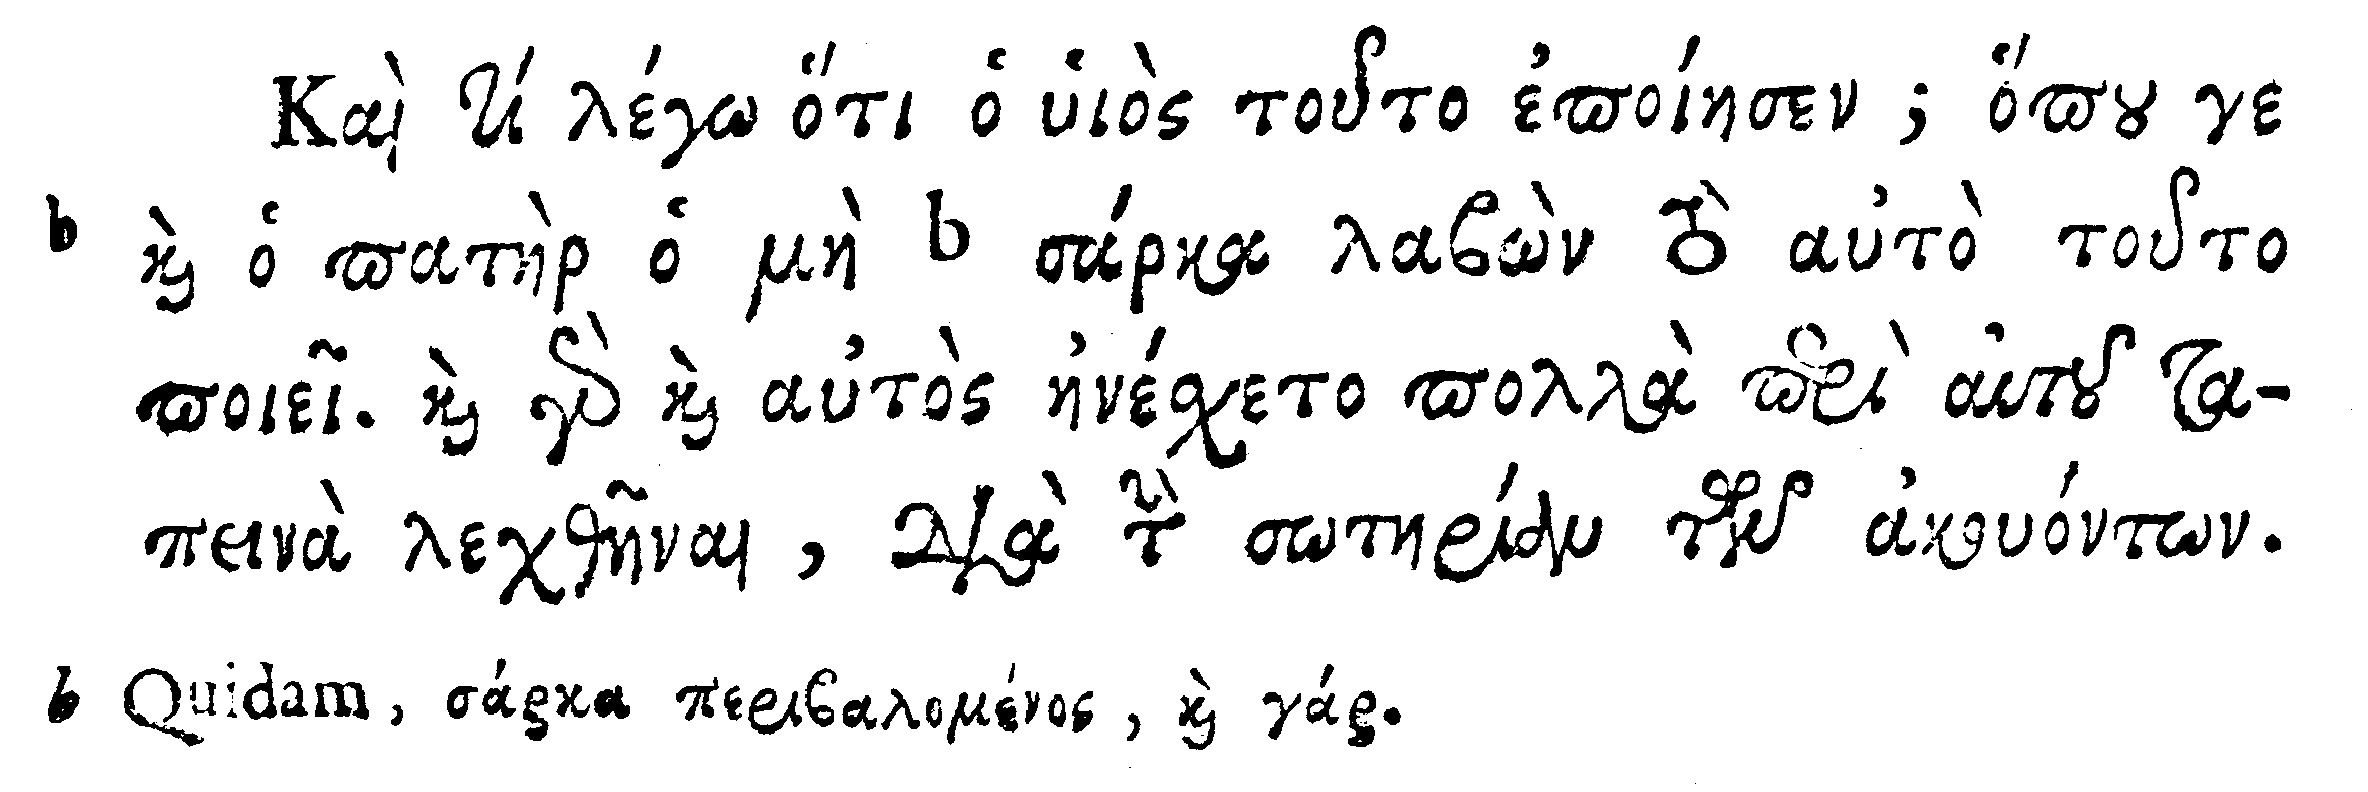 Καὶ τί λέγω ὅτι ὁ υἱὸς τοῦτο ἐποίησεν ; ὅπου γε
b καὶ ὁ πατὴρ ὁ μὴ b σάρκα λαβὼν τὸ αὐτὸ τοῦτο
ποιεῖ. καὶ γὰρ καὶ αὐτὸς ἠνέχετο πολλὰ περὶ αὐτοῦ τα-
πεινὰ λεχθῆναι , διὰ τὴν σωτηρίαν τῶν ἀκουόντων.
b Quidam, σάρκα περιβαλομένος, καὶ γάρ.